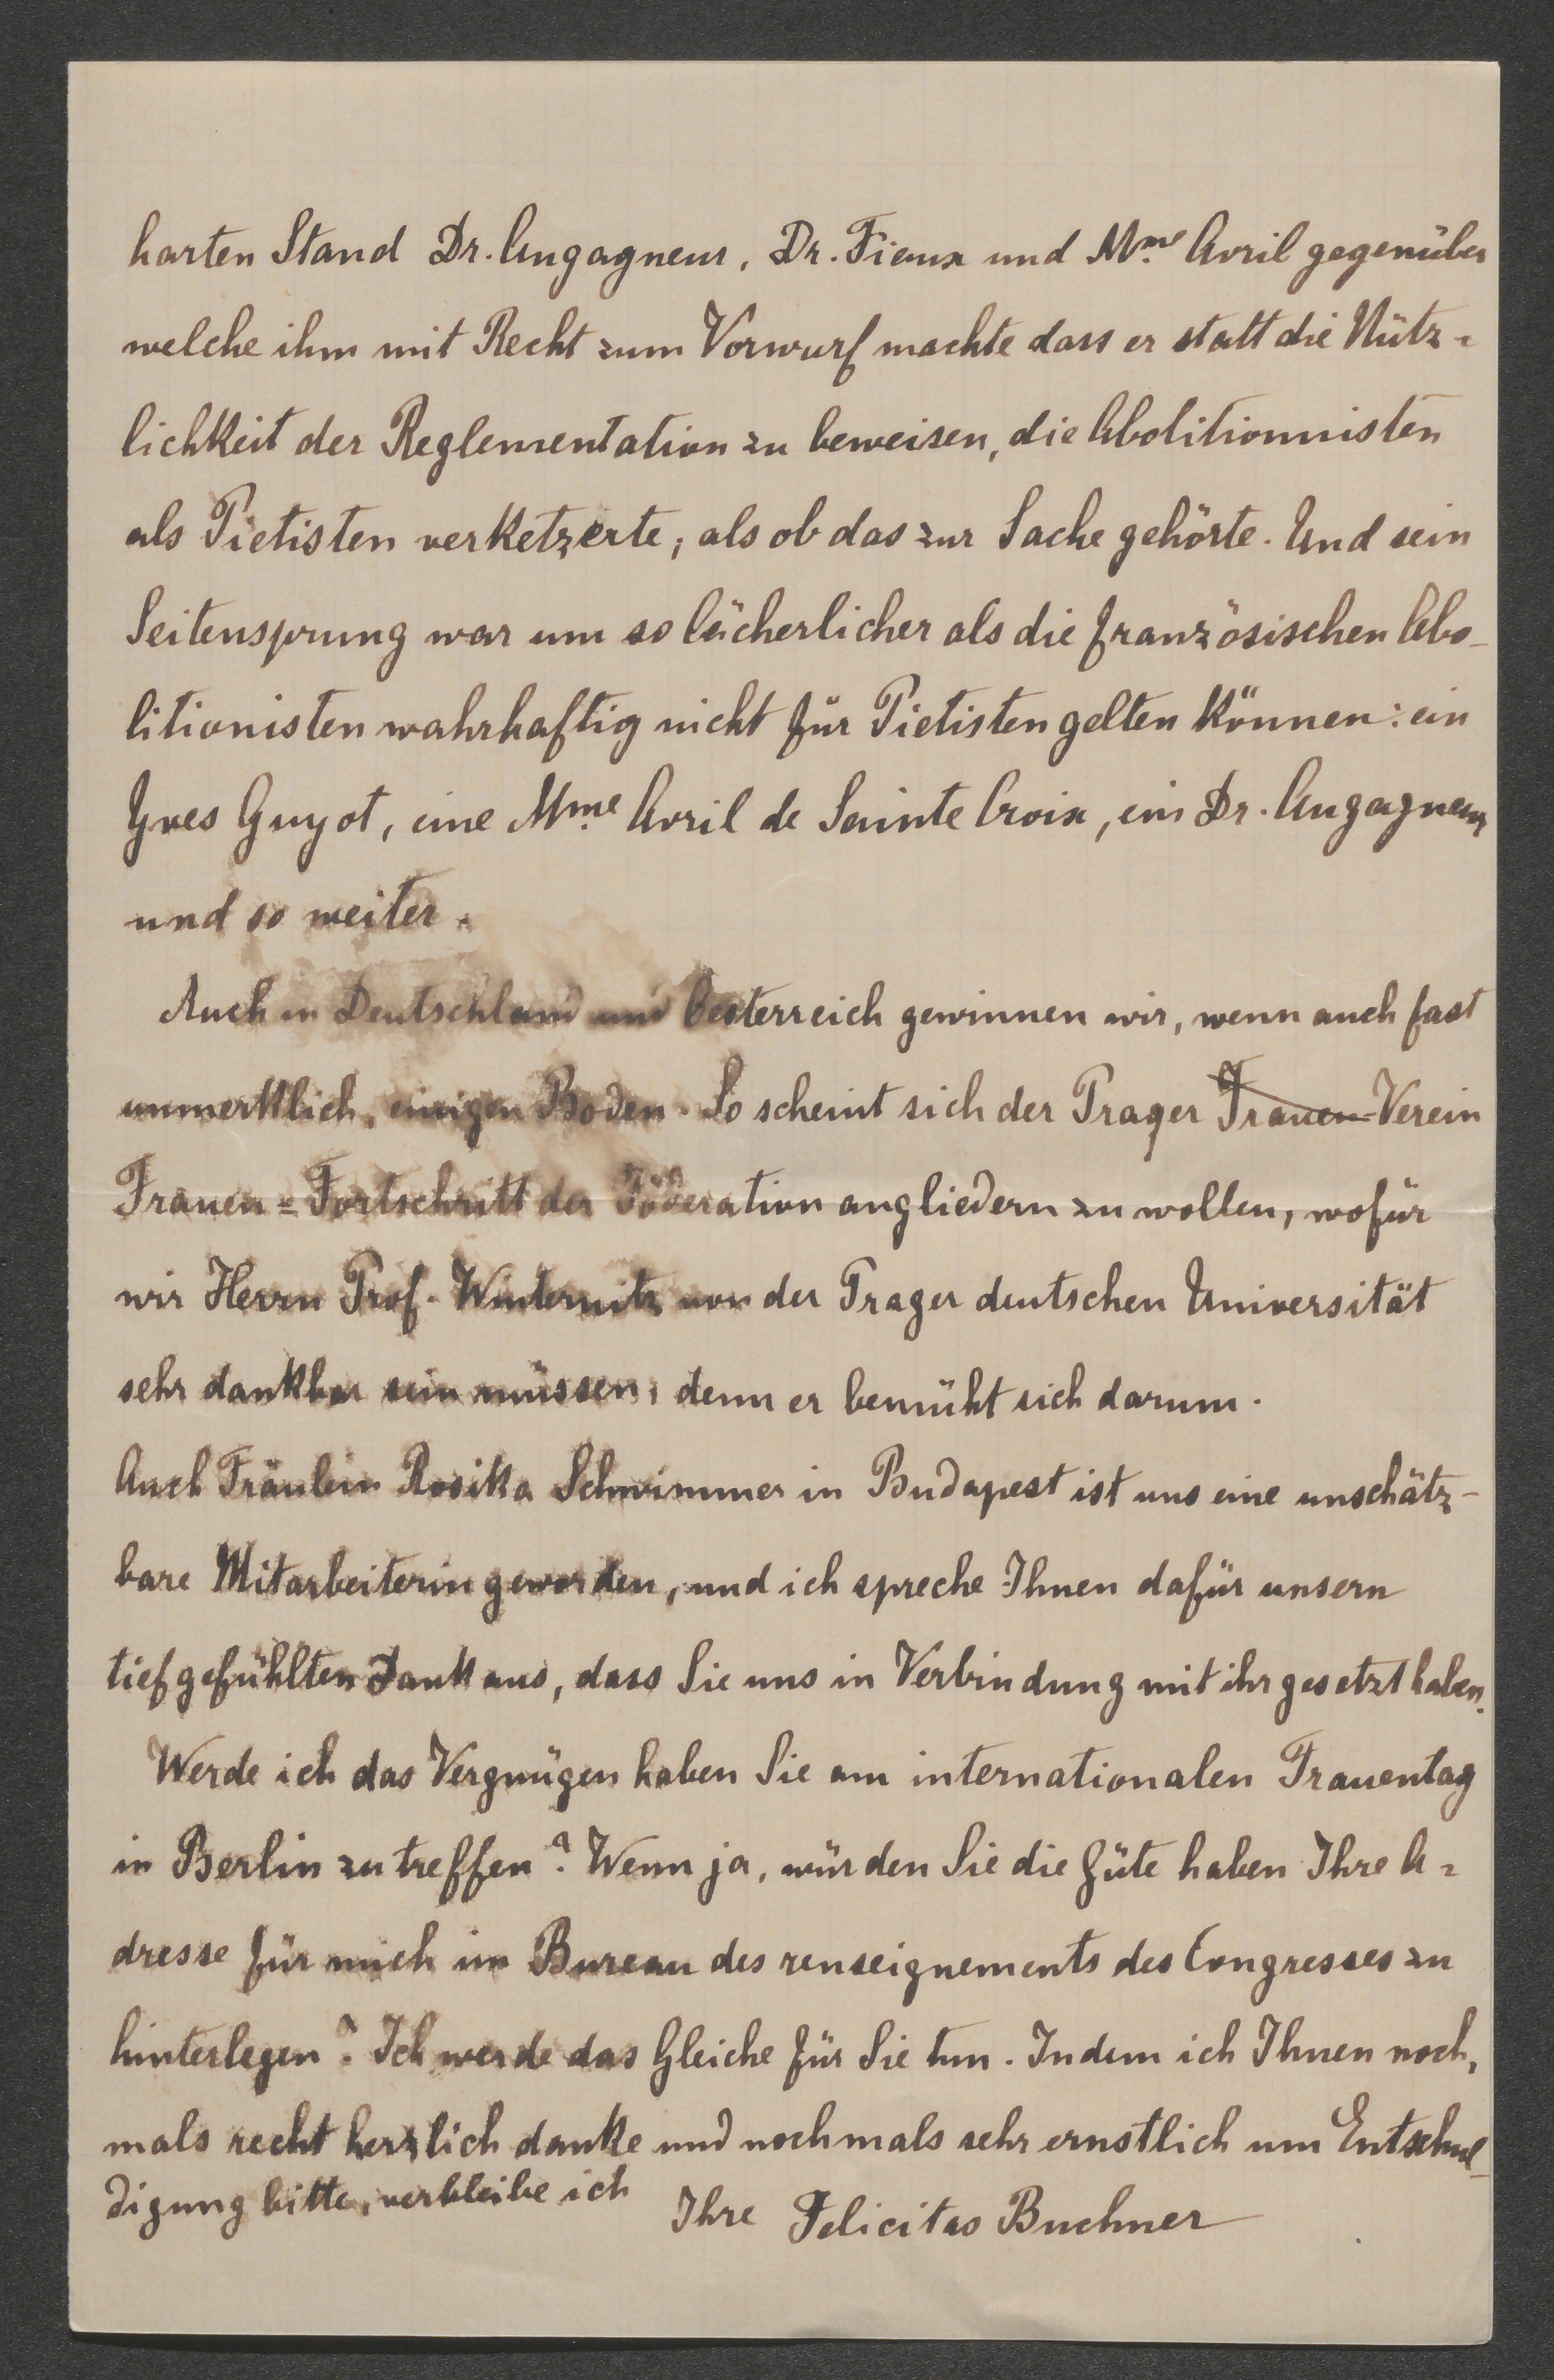 harten Stand Dr. Augagneur, Dr. Fiaux und Mme Avril gegenüber
welche ihm mit Recht zum Vorwurf machte dass er statt die Nütz=
lichkeit der Reglementation zu beweisen, die Abolitionnisten
als Pietisten verketzerte, als ob das zur Sache gehörte. Und sein
Seitensprung war um so lächerlicher als die französischen Abo-
litionisten wahrhaftig nicht für Pietisten gelten können: ein
Yves Guyot, eine Mme Avril de Sainte Croix, ein Dr. Augagneur
und so weiter.
Auch in Deutschland und Oesterreich gewinnen wir, wenn auch fast
unmerklich, einigen Boden. So scheint sich der Prager Frauen-Verein
Frauen=Fortschritt der Föderation angliedern zu wollen, wofür
wir Herrn Prof. Winternitz von der Prager deutschen Universität
sehr dankbar sein müssen, denn er bemüht sich darum.
Auch Fräulein Rosika Schwimmer in Budapest ist uns eine unschätz-
bare Mitarbeiterin geworden, und ich spreche Ihnen dafür unsern
tiefgefühlten Dank aus, dass Sie uns in Verbindung mit ihr gesetzt haben.
Werde ich das Vergnügen haben Sie am internationalen Frauentag
in Berlin zu treffen? Wenn ja, würden Sie die Güte haben Ihre A=
dresse für mich im Bureau des renseignements des Congresses zu
hinterlegen? Ich werde das Gleiche für Sie tun. Indem ich Ihnen noch,
mals recht herzlich danke und nochmals sehr ernstlich um Entschul-
digung bitte, verbleibe ich
Ihre Felicitas Buchner